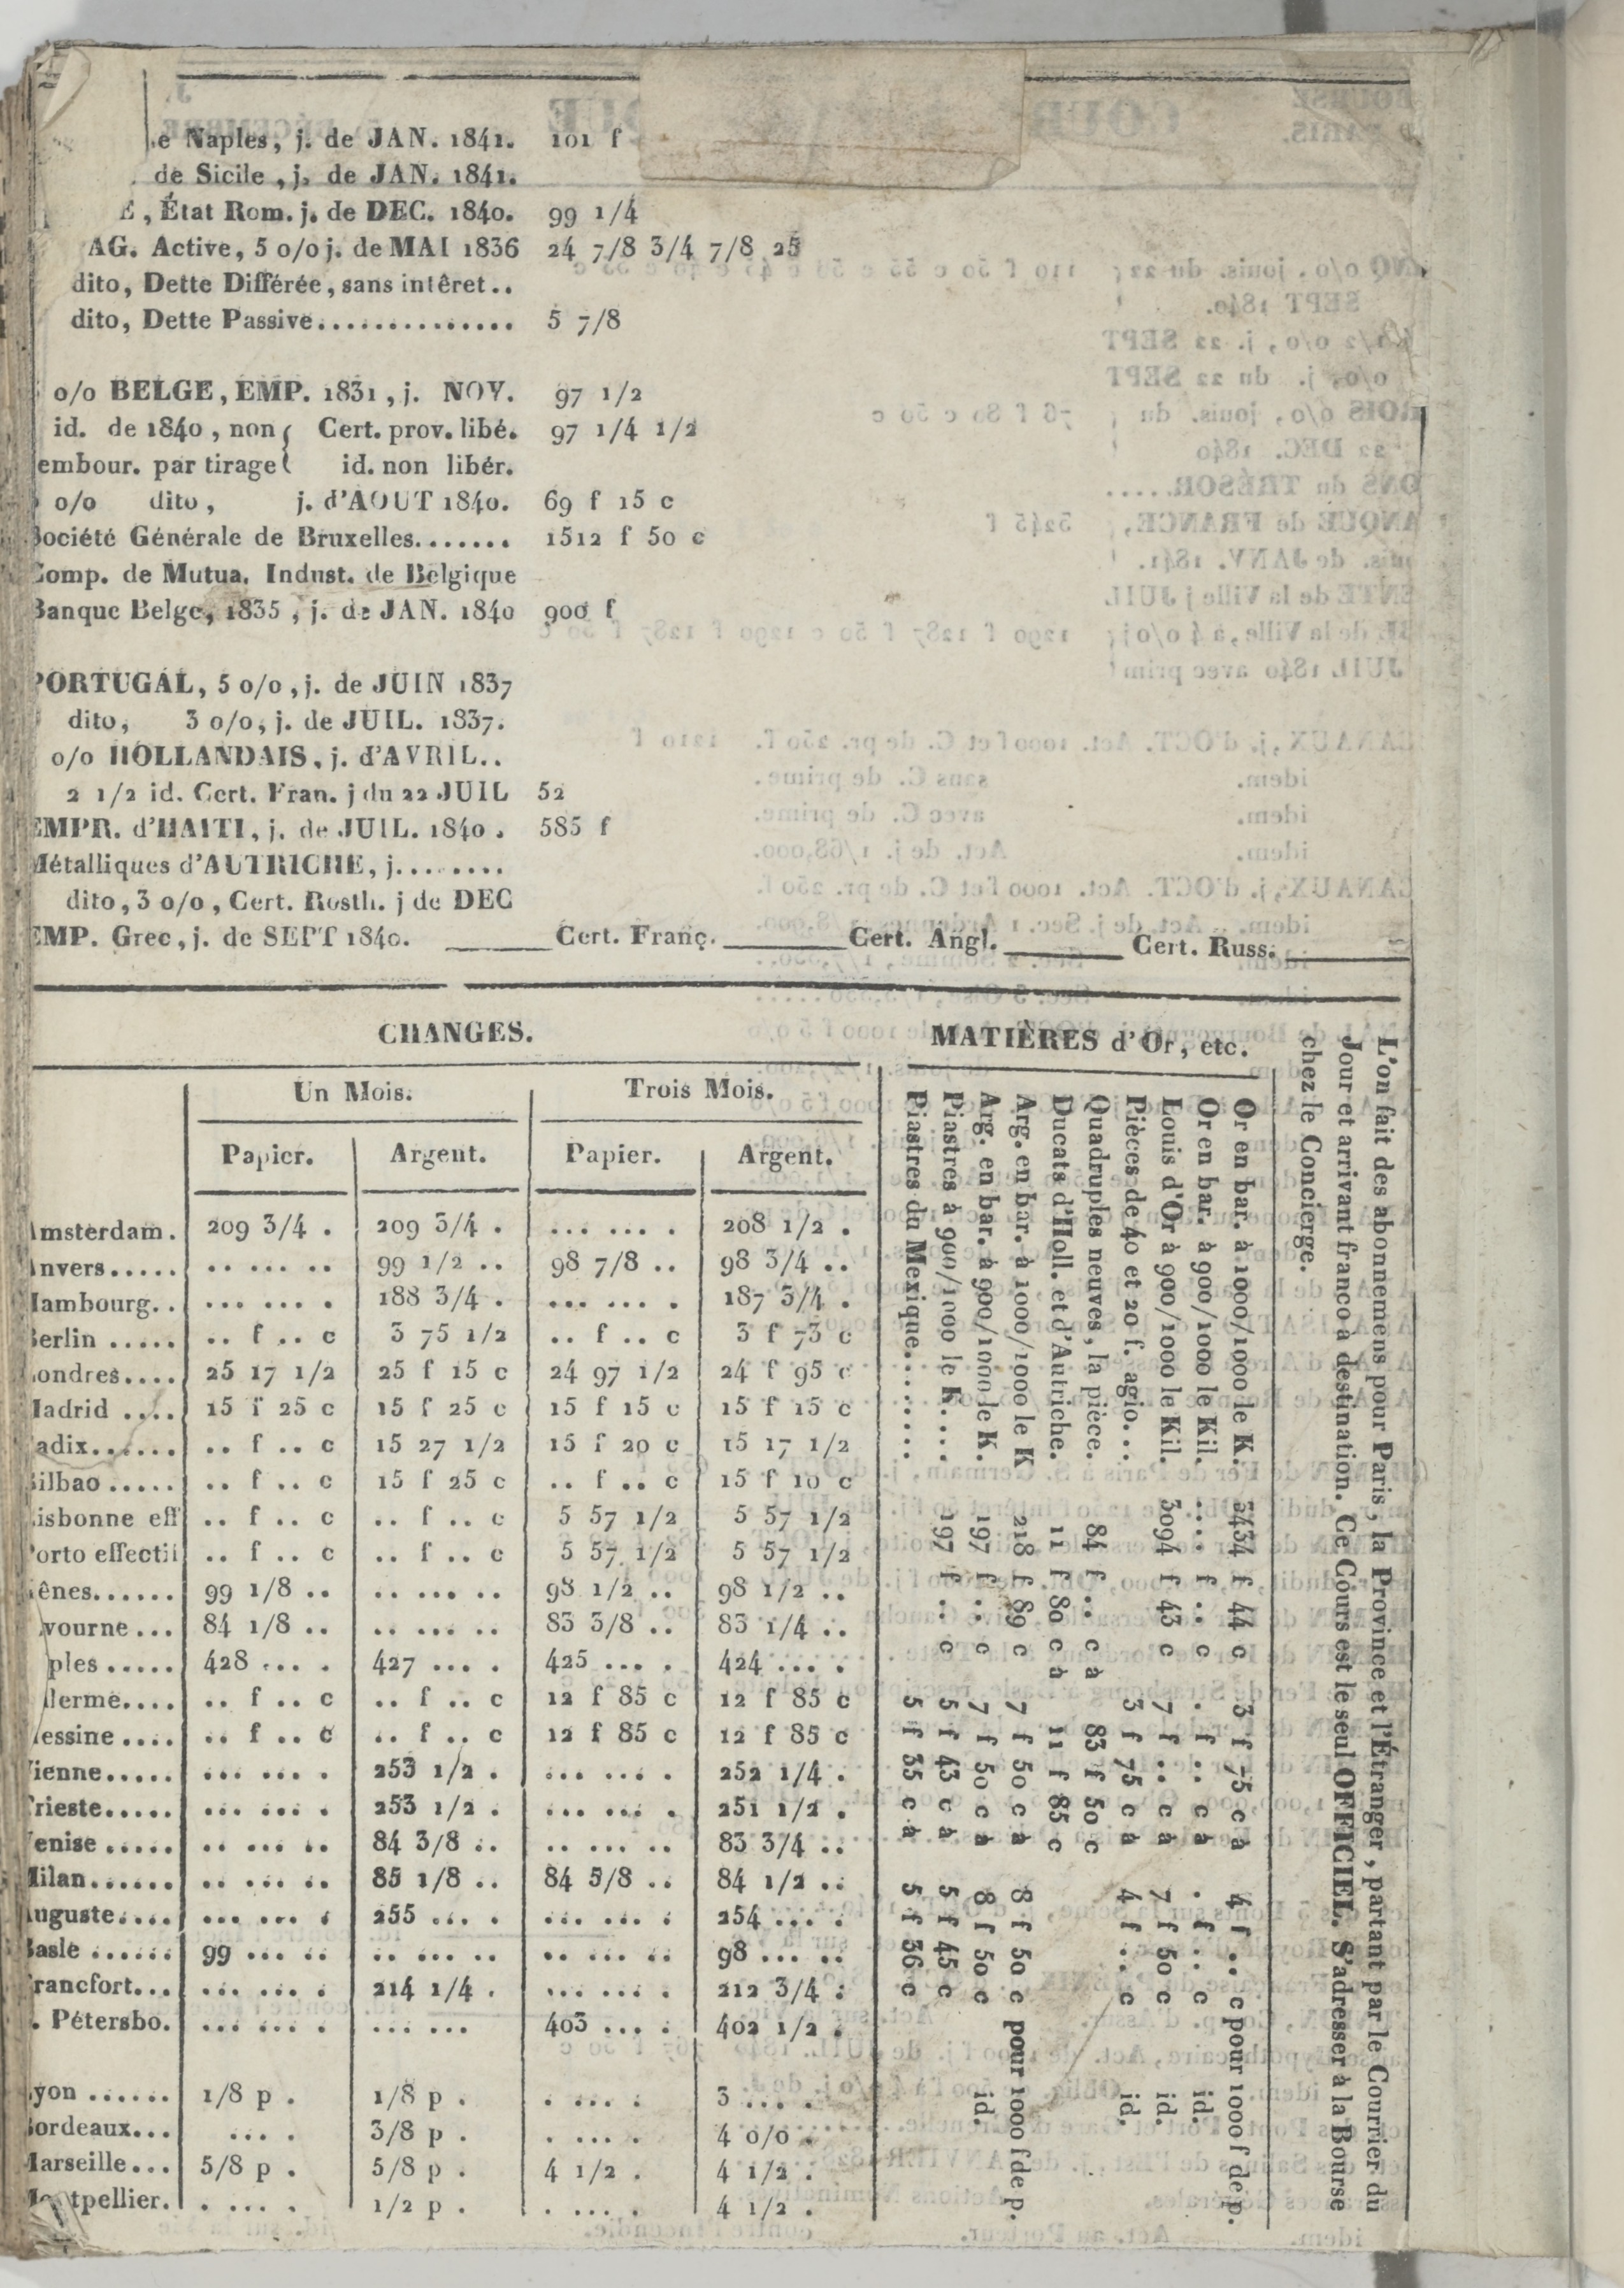 e Naples, j. de JAN. 1841. 101 f
de Sicile, j. de JAN. 1841.
É, État Rom. j. de DEC. 1840. 99 1/4
AG. Active, 5 o/o j. de MAI 1836 24 7/8 3/4 7/8 25
dito, Dette Différée, sans intêret..
dito, Dette Passive.............. 5 7/8
o/o BELGE, EMP. 1831, j. NOV. 97 1/2
id. de 1840, non { Cert. prov. libé. 97 1/4 1/2
embour. par tirage { id. non libér.
o/o dito, j. d'AOUT 1840. 69 f 15 c
Société Générale de Bruxelles....... 1512 f 50 c
Comp. de Mutua. Indust. de Belgique
Banque Belge, 1835, j. de JAN. 1840 900 f
PORTUGAL, 5 o/o, j. de JUIN 1837
dito, 3 o/o, j. de JUIL. 1837.
o/o HOLLANDAIS, j. d'AVRIL..
2 1/2 id. Cert. Fran. j du 22 JUIL 52
EMPR. d'HAITI, j. de JUIL. 1840. 585 f
Métalliques d'AUTRICHE, j........
dito, 3 o/o, Cert. Rosth. j de DEC
EMP. Grec, j. de SEPT 1840. ______ Cert. Franç. ______ Cert. Angl. ______ Cert. Russ. ______
CHANGES.
Un Mois. Trois Mois.
Papier. Argent. Papier. Argent.
Amsterdam. 209 3/4 . 209 3/4 . ... ... . 208 1/2 .
Anvers..... .. ... .. 99 1/2 .. 98 7/8 .. 98 3/4 ..
Hambourg.. ... ... . 188 3/4 . ... ... . 187 3/4 .
Berlin ..... .. f .. c 3 75 1/2 .. f .. c 3 f 73 c
Londres.... 25 17 1/2 25 f 15 c 24 97 1/2 24 f 95 c
Madrid .... 15 f 25 c 15 f 25 c 15 f 15 c 15 f 15 c
adix...... .. f .. c 15 27 1/2 15 f 20 c 15 17 1/2
Bilbao ..... .. f .. c 15 f 25 c .. f .. c 15 f 10 c
Lisbonne eff .. f .. c .. f .. c 5 57 1/2 5 57 1/2
Porto effectif .. f .. c .. f .. c 5 57 1/2 5 57 1/2
Gênes...... 99 1/8 .. .. ... .. 98 1/2 .. 98 1/2 ..
vourne ... 84 1/8 .. .. ... .. 83 3/8 .. 83 1/4 ..
ples ..... 428 ... . 427 ... . 425 ... . 424 ... .
lerme.... .. f .. c .. f .. c 12 f 85 c 12 f 85 c
essine .... .. f .. c .. f .. c 12 f 85 c 12 f 85 c
Vienne..... ... ... . 253 1/2 . ... ... . 252 1/4 .
Trieste..... ... ... . 253 1/2 . ... ... . 251 1/2 .
Venise ..... .. ... .. 84 3/8 .. .. ... .. 83 3/4 ..
Milan...... .. ... .. 85 1/8 .. 84 5/8 .. 84 1/2 ..
Auguste.... ... ... . 255 ... . ... ... . 254 ... .
Basle ...... 99 ... .. .. ... .. .. ... .. 98 ... ..
Francfort... ... ... . 214 1/4 . ... ... . 212 3/4 .
. Pétersbo. ... ... . ... ... 403 ... . 402 1/2 .
Lyon ...... 1/8 p . 1/8 p . . ... . 3 ... .
Bordeaux... ... . 3/8 p . . ... . 4 o/o .
Marseille... 5/8 p . 5/8 p . 4 1/2 . 4 1/2 .
Montpellier. . ... . 1/2 p . . ... . 4 1/2 .
MATIÈRES d'Or, etc.
Or en bar. à 1000/1000 le K. 3434 f 44 c 3 f 75 c à 4 f .. c pour 1000 f de p.
Or en bar. à 900/1000 le Kil. .... f .. c . f .. c à . f .. c id.
Louis d'Or à 900/1000 le Kil. 3094 f 43 c 7 f .. c à 7 f 50 c id.
Pièces de 40 et 20 f. agio... 3 f 75 c à 4 f .. c id.
Quadruples neuves, la pièce. 84 f .. c à 83 f 50 c
Ducats d'Holl. et d'Autriche. 11 f 80 c à 11 f 85 c
Arg. en bar. à 1000/1000 le K 218 f 89 c 7 f 50 c à 8 f 50 c pour 1000 f de p.
Arg. en bar. à 900/1000 le K. 197 f .. c 7 f 50 c à 8 f 50 c id.
Piastres à 900/1000 le K.... 197 f .. c 5 f 43 c à 5 f 45 c
Piastres du Mexique......... 5 f 35 c à 5 f 36 c
L'on fait des abonnemens pour Paris, la Province et l'Étranger, partant par le Courrier du
Jour et arrivant franco à destination. Ce Cours est le seul OFFICIEL. S'adresser à la Bourse
chez le Concierge.